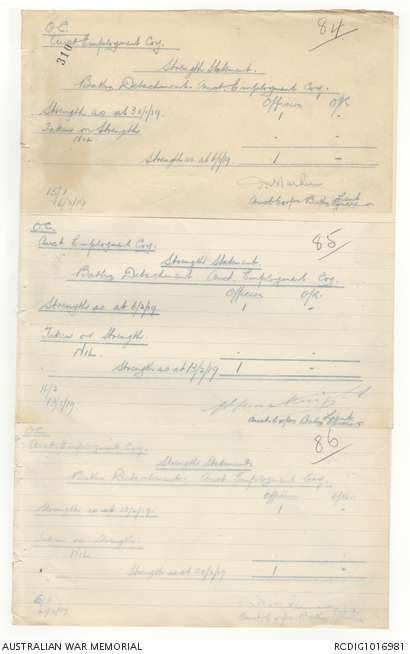 O.C.
Aust Employment Coy.
84
310
Strength Statement.
Baths Detachment. Aust. Employment Coy.
Officers O/R
Strength as at 30/1/19. 1 -
Taken on Strength
Nil - -
Strength as at 6/2/19. 1 -
Lieut
Aust Corps Baths Officer
O.C.
Aust. Employment Coy.
85
Strength Statement.
Baths Detachment Aust. Employment Coy.
Officers O/R.
Strength as at 6/2/19. 1 -
Taken on Strength.
NIL - -
Strength as at 13/2/19 1 -
13/2/19
Lieut
Aust Corps Baths Officer
O.C.
Aust Employment Coy.
86
Strength Statement
Baths Detachment. Aust. Employment Coy.
Officers O/R.
Strength as at 13/2/19. 1 -
Taken on Strength.
NIL - -
Strength as at 20/2/19 1 -
Aust Corps Baths
AUSTRALIAN WAR MEMORIAL
RCDIG1016981